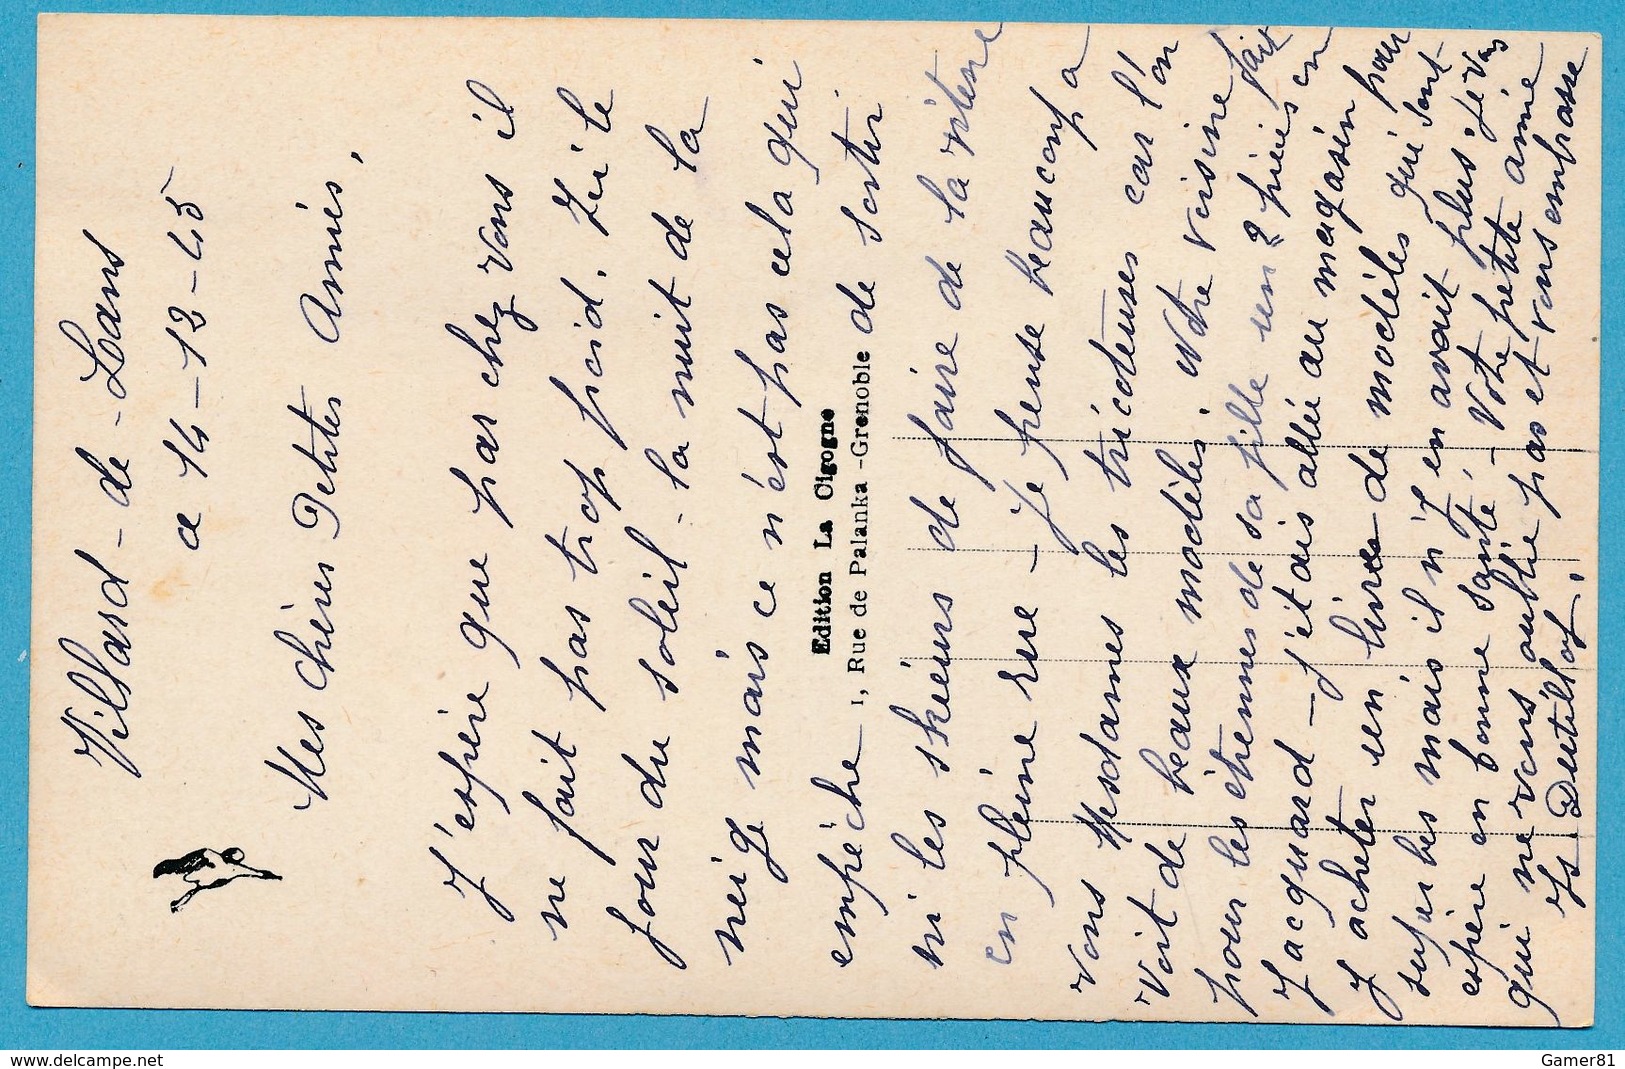 Villard-de-Lans
ce 14-12-45
Mes Chères Petites Amies,
J'espère que pas chez vous il
ne fait pas trop froid. Ici le
jour du soleil - la nuit de la
neige mais ce n'est pas cela qui
empêche de sortir
Edition La Cigogne
1, Rue de Palanka - Grenoble
ni les skieurs de faire de la vitesse
en pleine rue - Je pense beaucoup a
vous Mesdames les tricoteuses car l'on
voit de beaux modèles. Votre voisine fait
pour les étrennes de sa fille un 2 pièces en
Jacquard - J'étais allée au magasin pour
J acheter un livre de modèles qui sont
superbes mais il n'y en avait plus. Je vous
espère en bonne santé. Votre petite amie
qui ne vous oublie pas et vous embrasse
www.delcampe.net
Gamer81